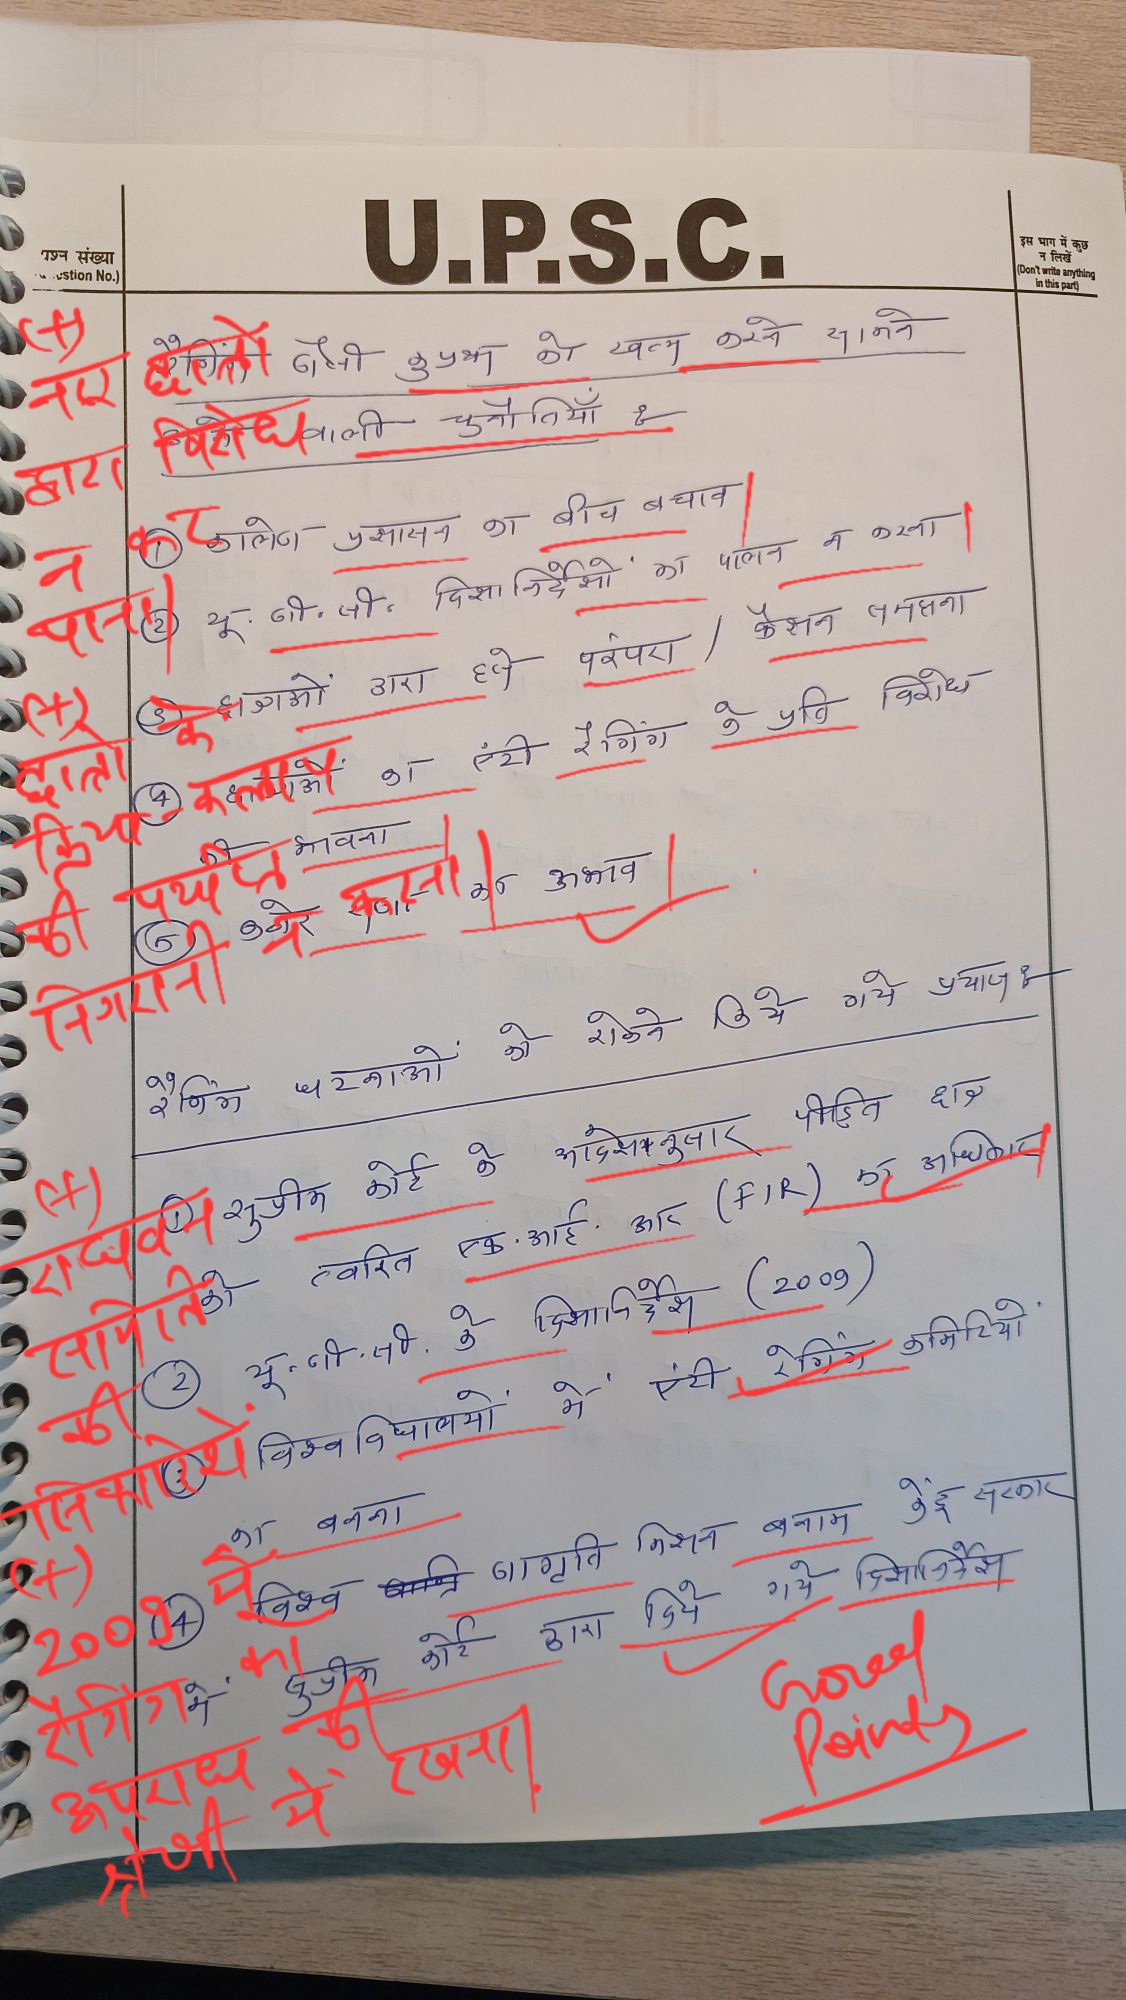 U.P.S.C.
प्रश्न संख्या
(Question No.)
इस भाग में कुछ
न लिखें
(Don't write anything
in this part)
रैगिंग जैसी कुप्रथा को खत्म करने सामने
वाली चुनौतियाँ :-
① कालेज प्रशासन का बीच बचाव
② यू. जी. सी. दिशानिर्देशों का पालन न करना
③ छात्राओं द्वारा इसे परंपरा / फैशन समझना
④ छात्राओं का एंटी रैगिंग के प्रति विरोध
की भावना
⑤ कठोर सजा का अभाव
रैगिंग घटनाओं को रोकने किये गये प्रयास :-
① सुप्रीम कोर्ट के आदेशानुसार पीड़ित छात्र
को त्वरित एफ. आई. आर (FIR) का अधिकार
② यू. जी. सी. के दिशानिर्देश (2009)
③ विश्वविद्यालयों में एंटी रैगिंग कमिटियों
का बनना
④ विश्व जागृति मिशन बनाम केंद्र सरकार
में सुप्रीम कोर्ट द्वारा दिये गये दिशानिर्देश
(+)
नए छात्रों
द्वारा विरोध
न कर
पाना।
(+)
छात्रों के
क्रिया-कलाप
की पर्याप्त
निगरानी न करना।
(+)
राघवन
समिति
की
सिफारिशें
(+)
2009 में
रैगिंग को
अपराध की
श्रेणी में रखना।
Good
Points